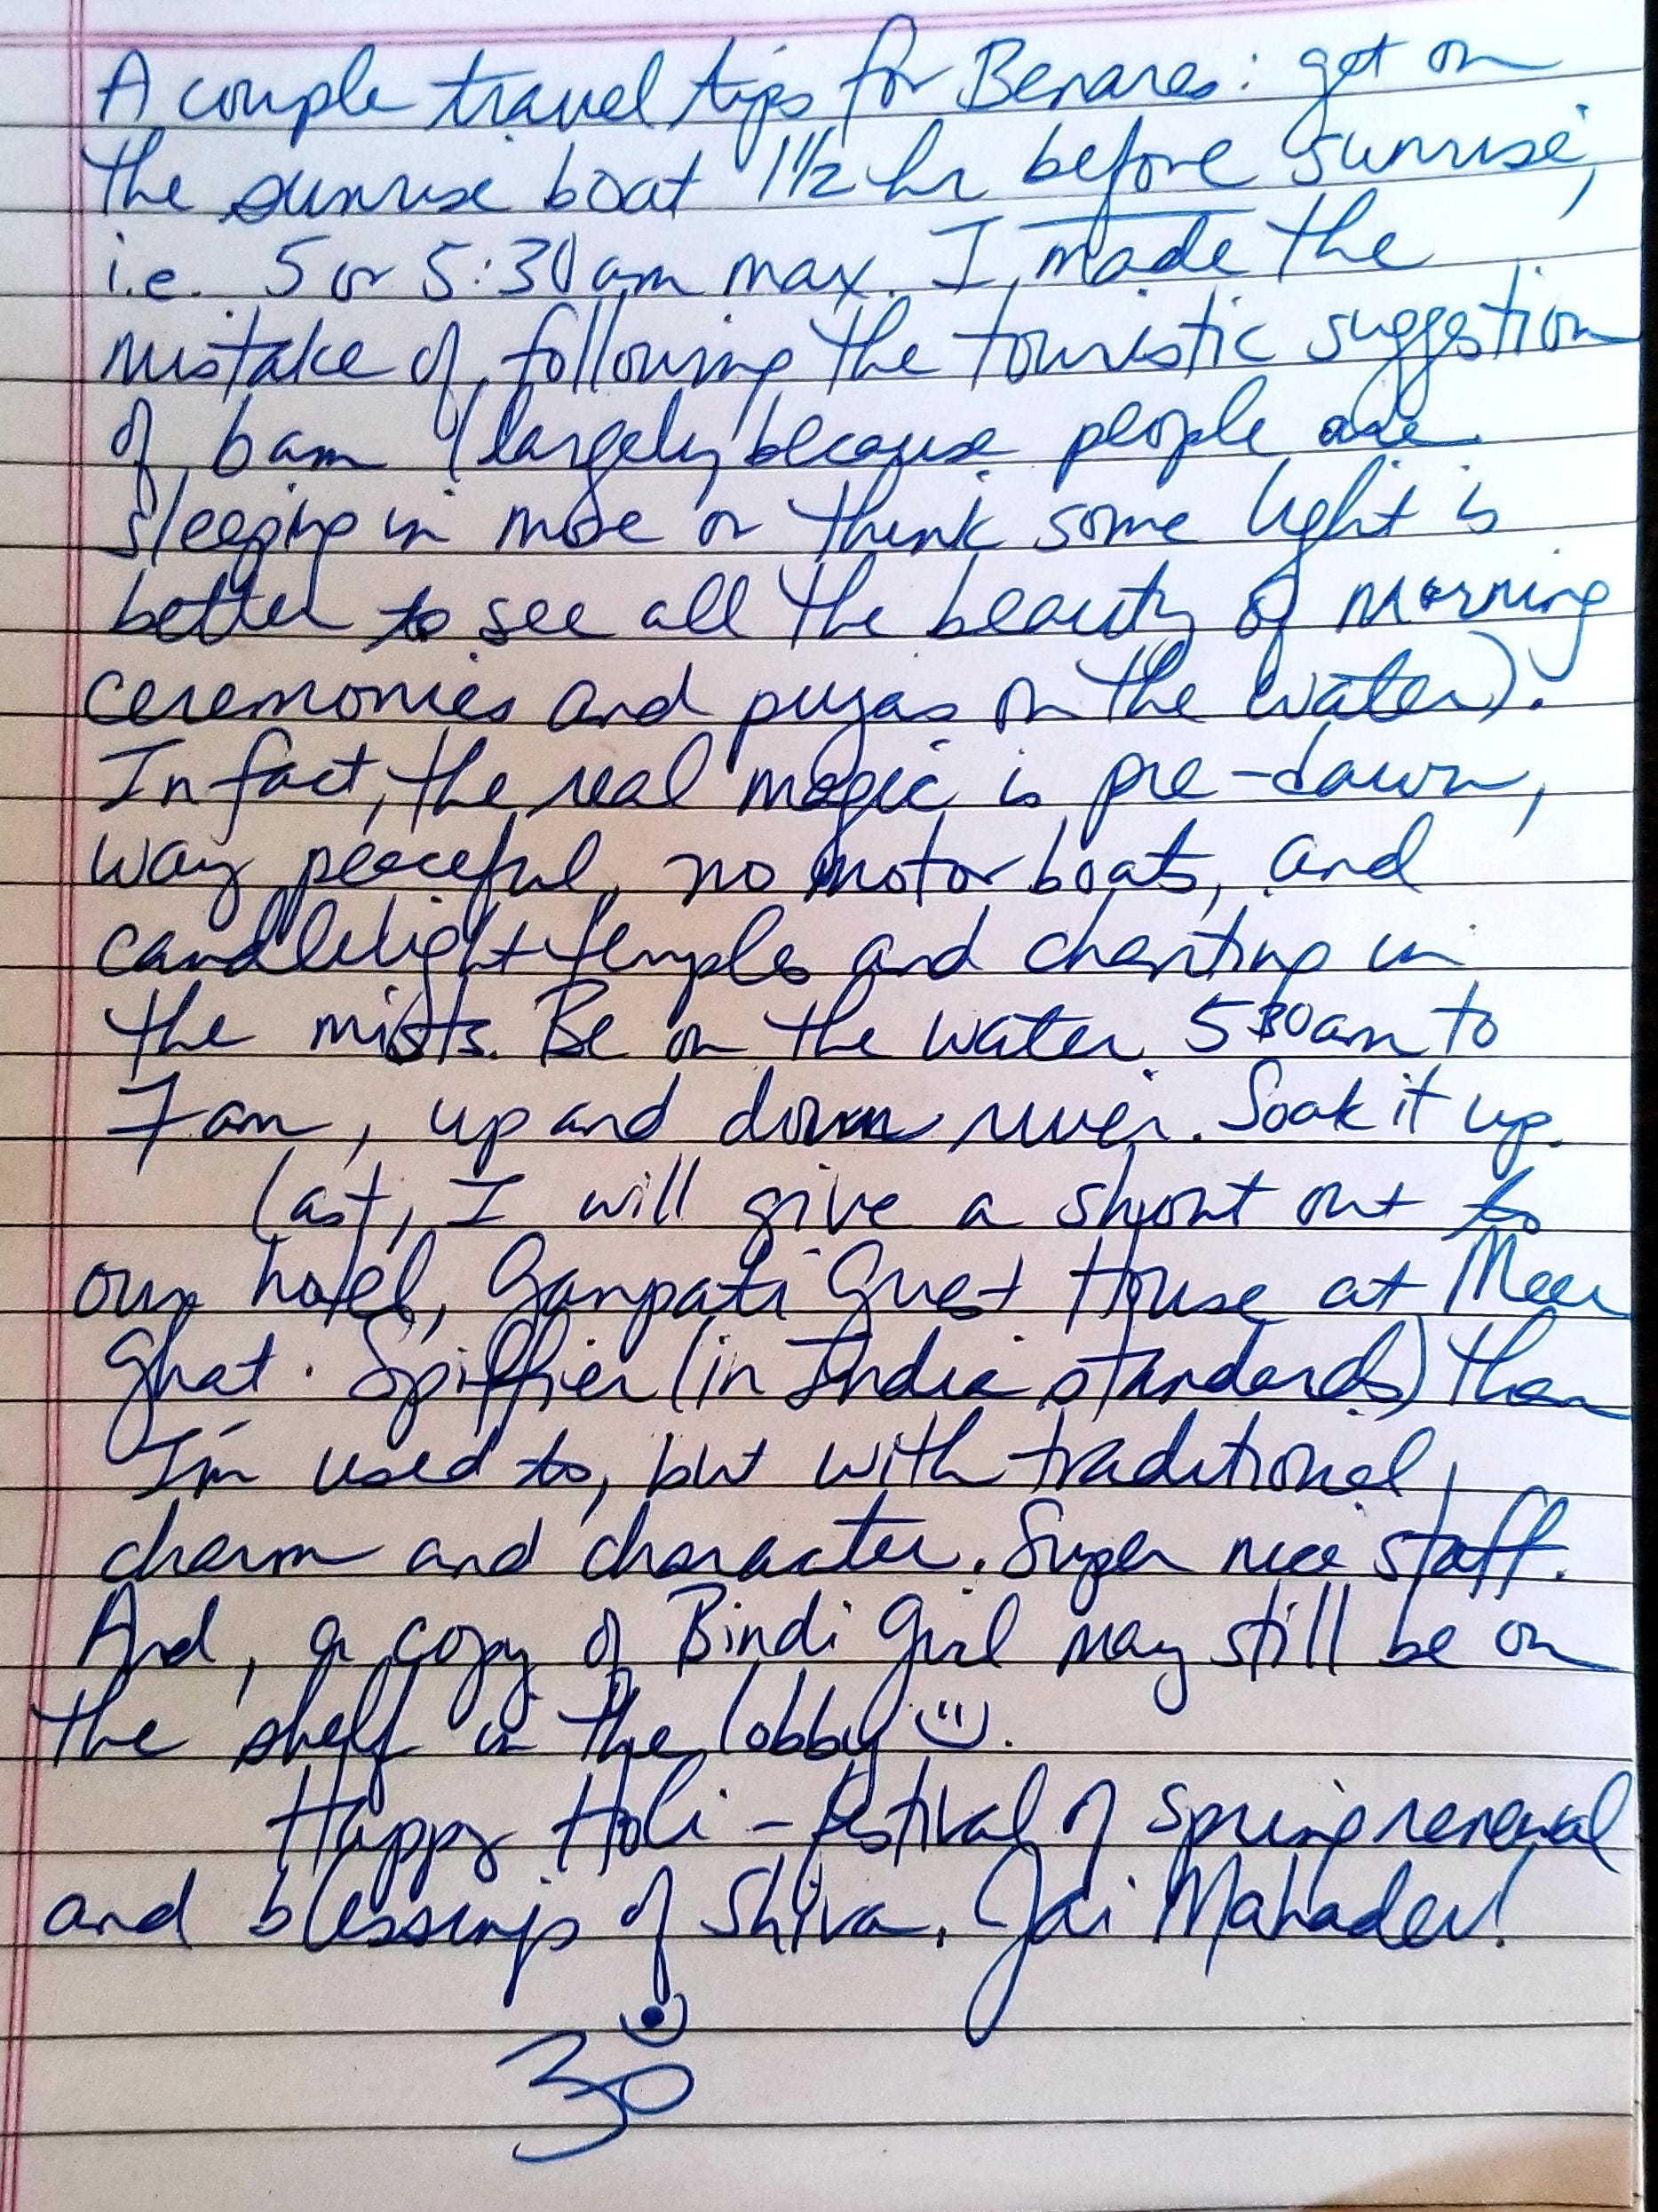 A couple travel tips for Benares: get on
the sunrise boat 1½ hr before sunrise,
i.e. 5 or 5:30 am max. I made the
mistake of following the touristic suggestion
of 6am (largely because people are
sleeping in more or think some light is
better to see all the beauty of morning
ceremonies and pujas on the water).
In fact, the real magic is pre-dawn,
way peaceful, no motor boats, and
candlelight temples and chanting in
the mists. Be on the water 530am to
7am, up and down river. Soak it up.
Last, I will give a shout out to
our hotel, Ganpati Guest House at Meer
Ghat. Spiffier (in India standards) than
I'm used to, but with traditional
charm and character. Super nice staff.
And, a copy of Bindi Girl may still be on
the shelf in the lobby ☺.
Happy Holi - festival of spring renewal
and blessings of Shiva. Jai Mahadev!
ॐ